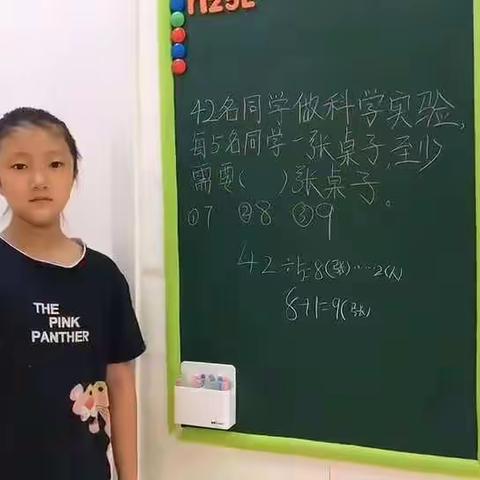 42名同学做科学实验,
每5名同学一张桌子,至少
需要( )张桌子。
①7 ②8 ③9
42÷5=8(张)……2(人)
8+1=9(张)
THE
PINK
PANTHER